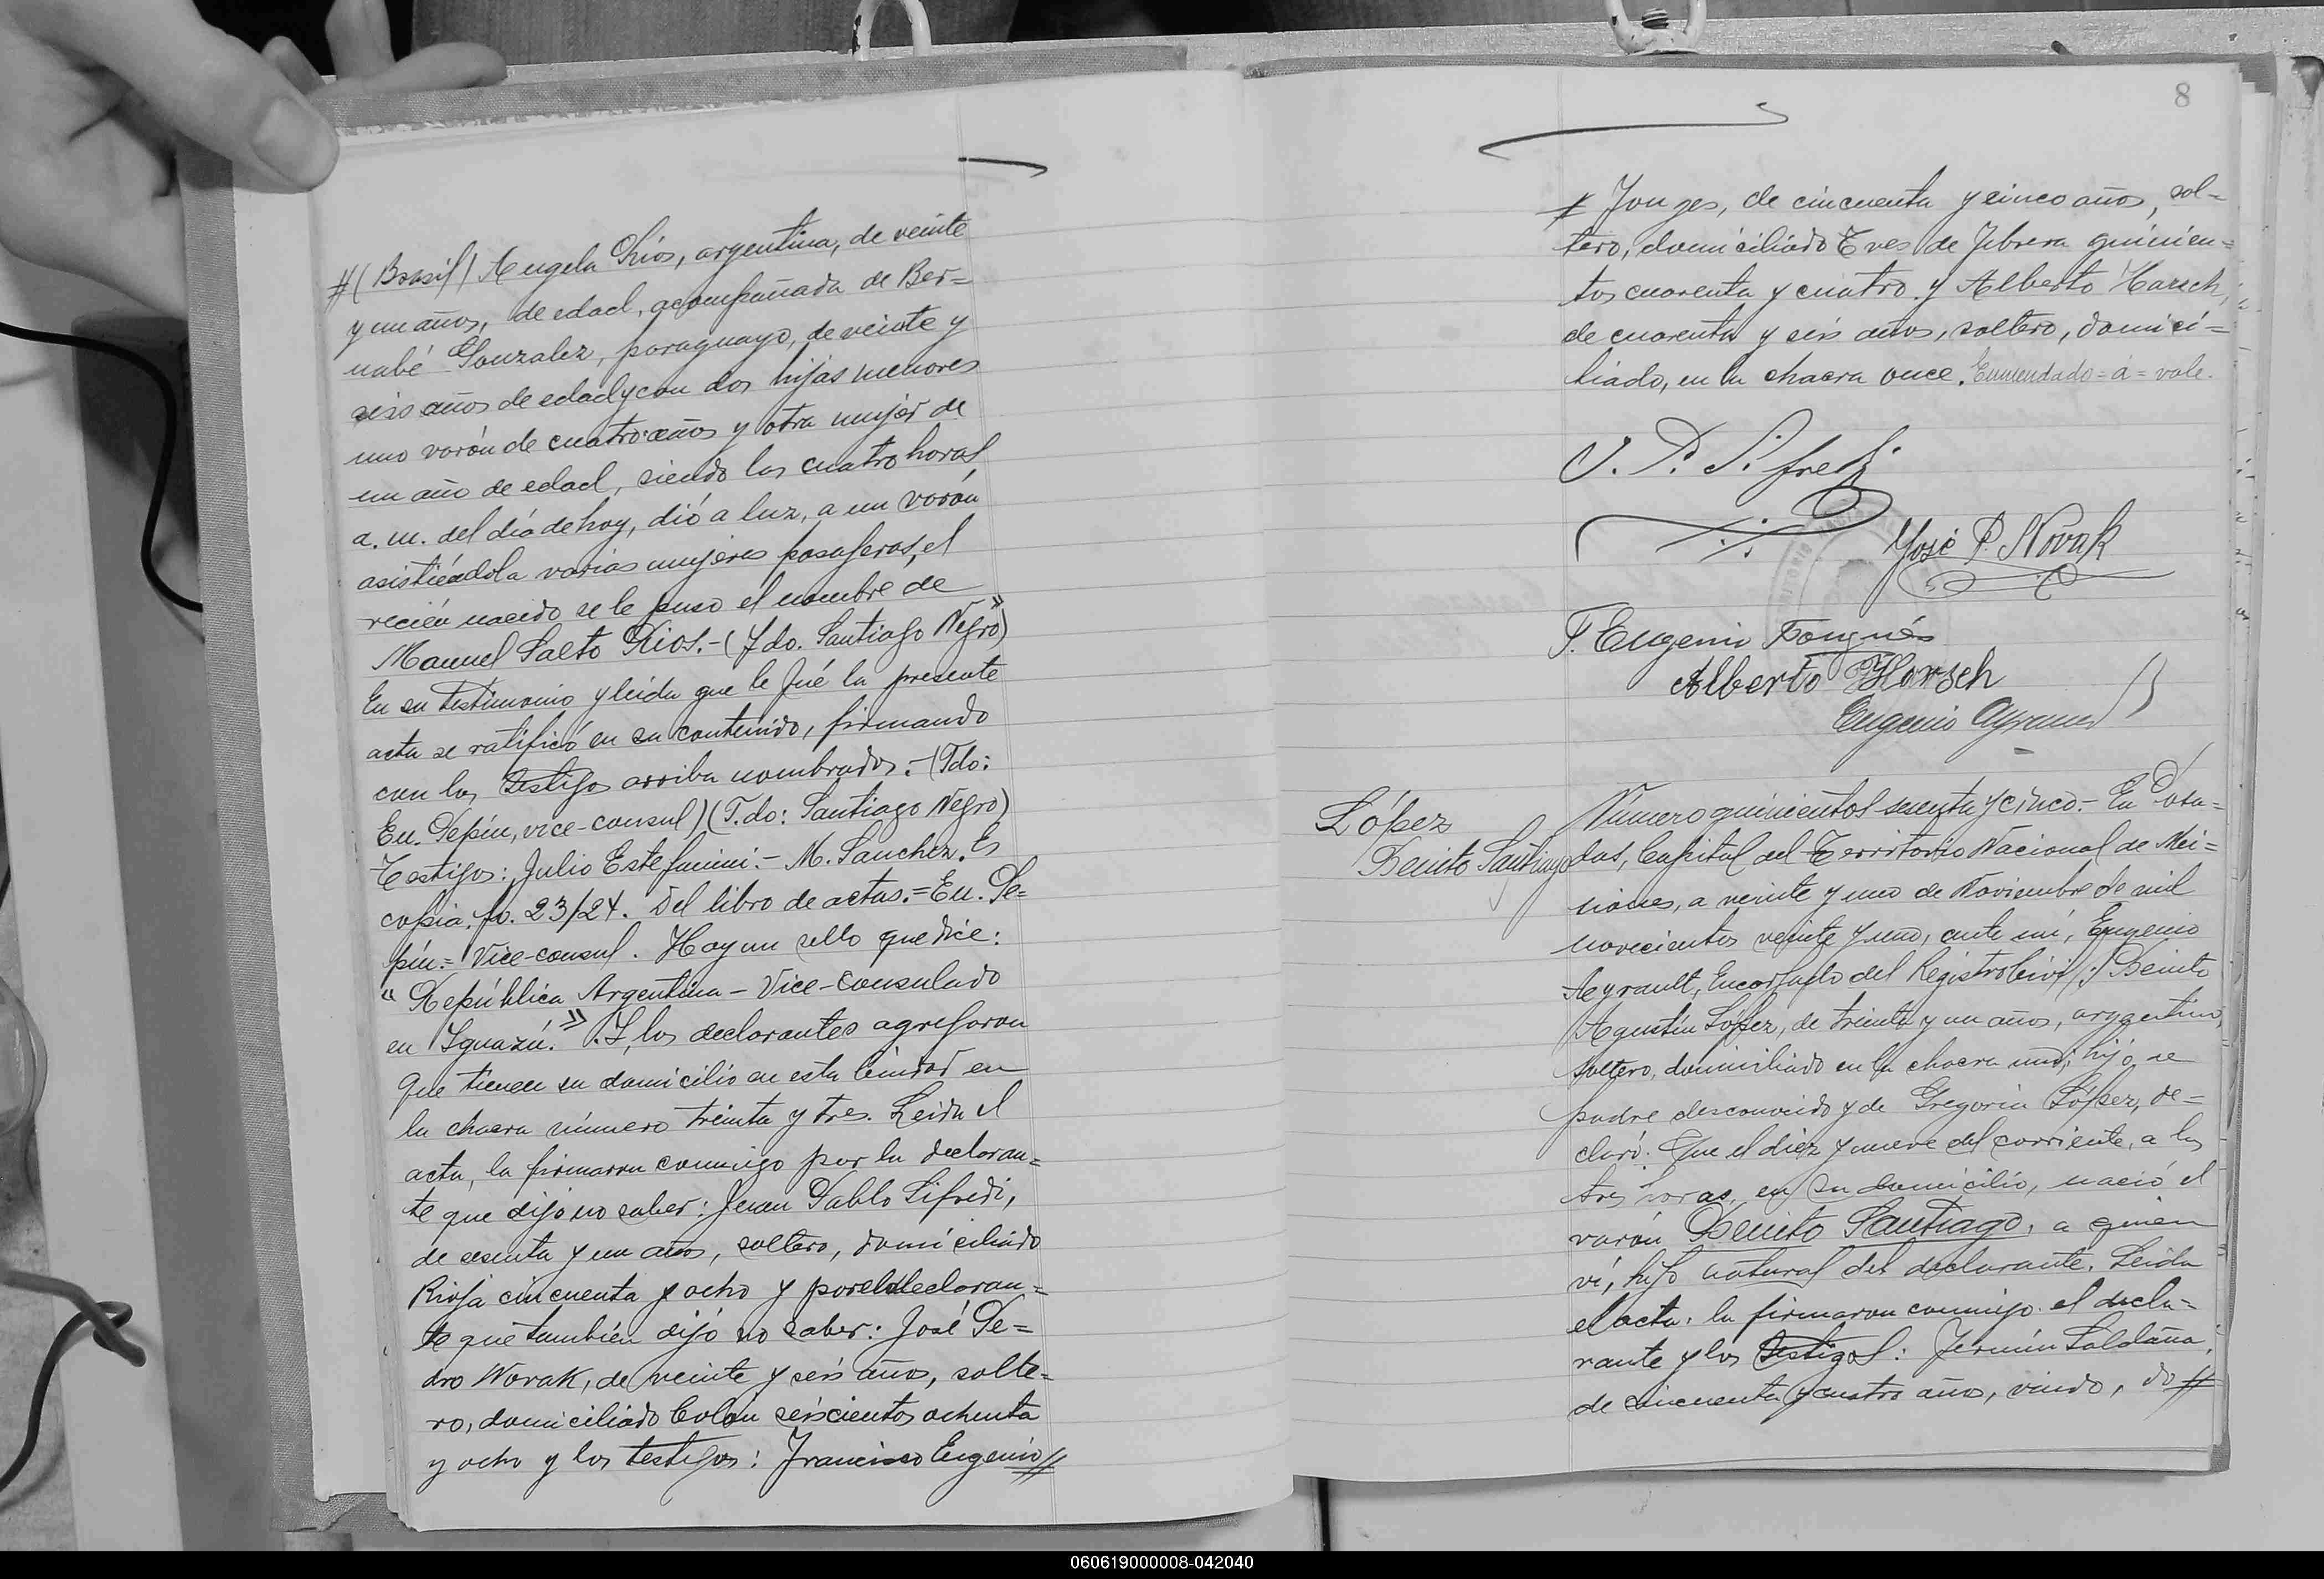 #(Brasil) Angela Ríos, argentina, de veinte
y un años, de edad, acompañada de Ber=
nabé Gonzalez, paraguayo, de veinte y
seis años de edad y con dos hijas menores
uno varón de cuatro años y otra mujer de
un año de edad, siendo las cuatro horas
a. m. del día de hoy, dió a luz, a un varón
asistiéndola varias mujeres pasajeras, el
recién nacido se le puso el nombre de
Manuel Salto Rios.-(Fdo. Santiago Negro)"
En su testimonio y leida que le fué la presente
acta se ratificó en su contenido, firmando
con los testigos arriba nombrados.-(Fdo:
Eu. Pepín, vice-consul)(F.do: Santiago Negro)
Testigos: Julio Estefanini.- M. Sanchez. Es
copia. fo. 23/24. Del libro de actas.= Eu. Pe=
pín.= Vice-consul. Hay un sello que dice:
"República Argentina - Vice-Consulado
en Iguazú." Y, los declarantes agregaron
que tienen su domicilio en esta ciudad en
la chacra número treinta y tres. Leida el
acta, la firmaron conmigo por la declaran=
te que dijo no saber: Juan Pablo Sifredi,
de sesenta y un años, soltero, domiciliado
Rioja cincuenta y ocho y por el declaran=
te que también dijo no saber: José Pe=
dro Novak, de veinte y seis años, solte=
ro, domiciliado Colon seiscientos ochenta
y ocho y los testigos: Francisco Eugenio #
8
# de cincuenta y cinco años, sol=
tero, domiciliado Tres de Febrero quinien=
tos cuarenta y cuatro y Alberto Harsch,
de cuarenta y seis años, soltero, domici=
liado, en la chacra once. Enmendado=a=vale.
J. P. Sifredi
José P. Novak
F. Eugenio
Alberto Harsch
Eugenio Ayrault
López
Benito Santiago
Número quinientos sesenta y cinco.- En Posa=
das, Capital del Territorio Nacional de Mi=
siones, a veinte y uno de Noviembre de mil
novecientos veinte y uno, ante mí, Eugenio
Ayrault, Encargado del Registro Civil: Benito
Agustín López, de treinta y un años, argentino,
soltero, domiciliado en la chacra hijo, de
padre desconocido y de Gregoria López, de=
claró: Que el diez y nueve del corriente, a las
tres horas, en su domicilio, nació el
varón Benito Santiago, a quien
ví, hijo natural del declarante. Leida
el acta, la firmaron conmigo el decla=
rante y los testigos: Fermín Saldaña,
de cincuenta y cuatro años, viudo, do #
060619000008-042040